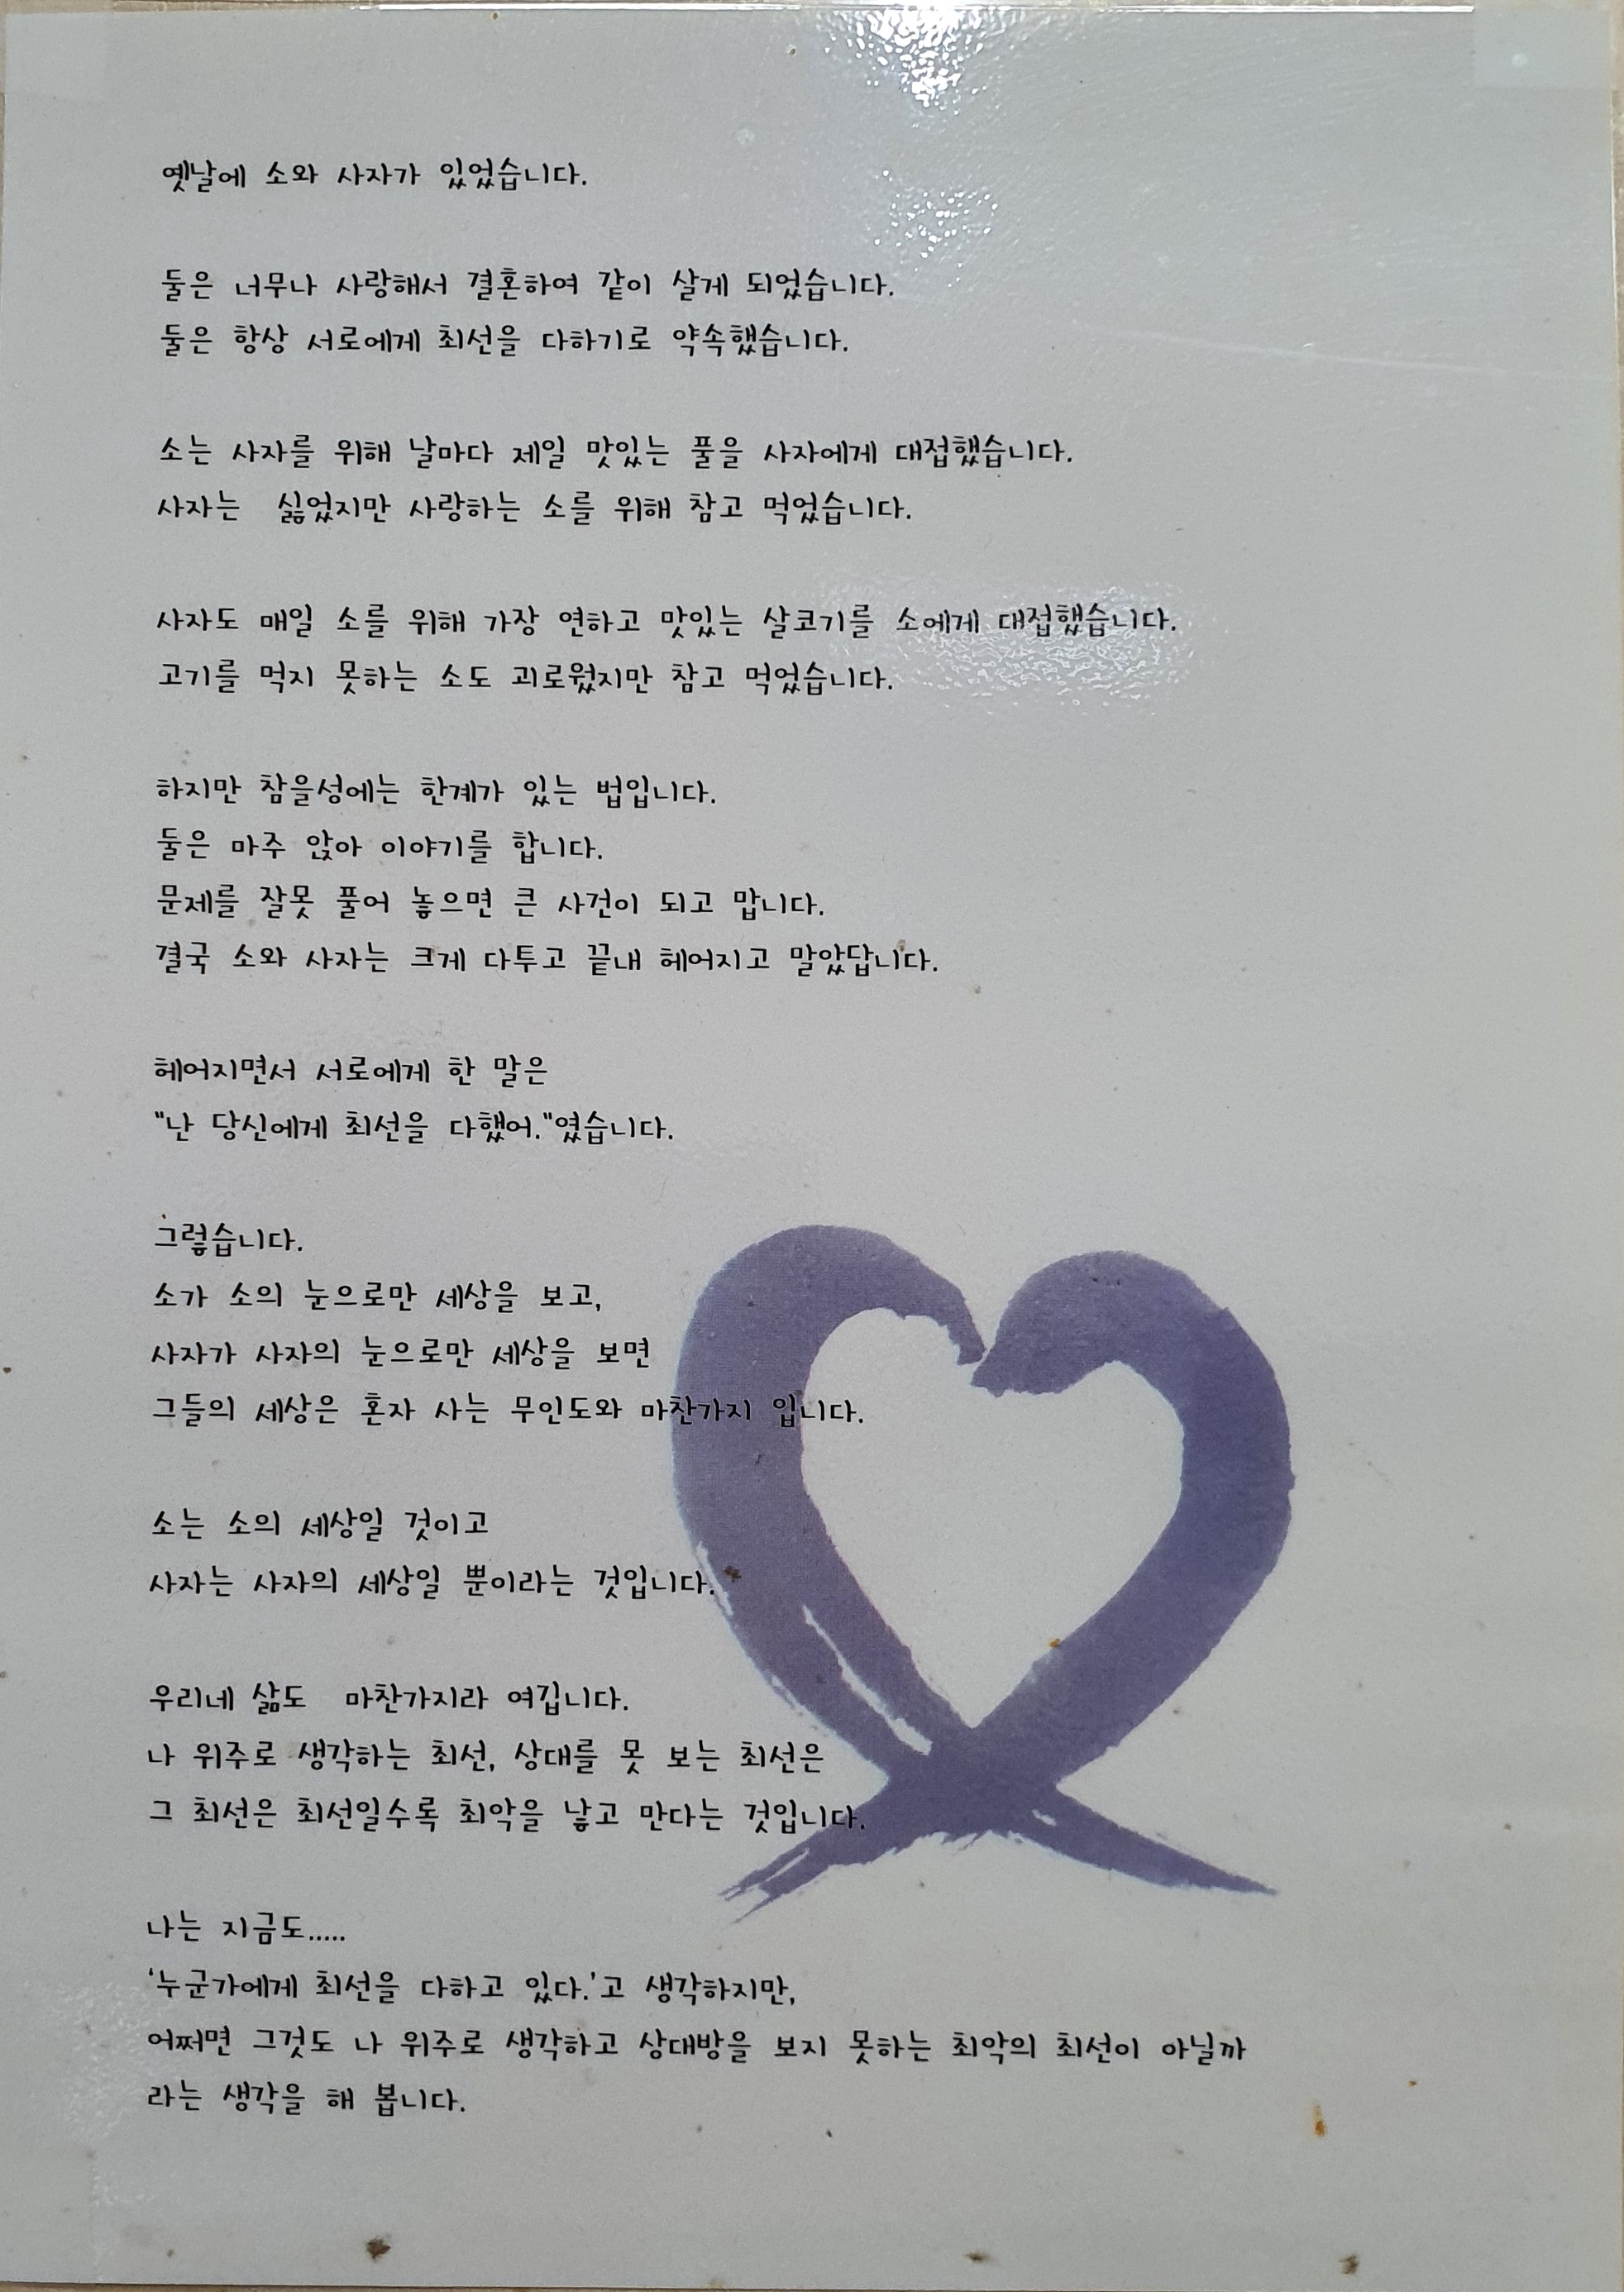 옛날에 소와 사자가 있었습니다.
둘은 너무나 사랑해서 결혼하여 같이 살게 되었습니다.
둘은 항상 서로에게 최선을 다하기로 약속했습니다.
소는 사자를 위해 날마다 제일 맛있는 풀을 사자에게 대접했습니다.
사자는 싫었지만 사랑하는 소를 위해 참고 먹었습니다.
사자도 매일 소를 위해 가장 연하고 맛있는 살코기를 소에게 대접했습니다.
고기를 먹지 못하는 소도 괴로웠지만 참고 먹었습니다.
하지만 참을성에는 한계가 있는 법입니다.
둘은 마주 앉아 이야기를 합니다.
문제를 잘못 풀어 놓으면 큰 사건이 되고 맙니다.
결국 소와 사자는 크게 다투고 끝내 헤어지고 말았답니다.
헤어지면서 서로에게 한 말은
"난 당신에게 최선을 다했어."였습니다.
그렇습니다.
소가 소의 눈으로만 세상을 보고,
사자가 사자의 눈으로만 세상을 보면
그들의 세상은 혼자 사는 무인도와 마찬가지 입니다.
소는 소의 세상일 것이고
사자는 사자의 세상일 뿐이라는 것입니다.
우리네 삶도 마찬가지라 여깁니다.
나 위주로 생각하는 최선, 상대를 못 보는 최선은
그 최선은 최선일수록 최악을 낳고 만다는 것입니다.
나는 지금도.....
'누군가에게 최선을 다하고 있다.'고 생각하지만,
어쩌면 그것도 나 위주로 생각하고 상대방을 보지 못하는 최악의 최선이 아닐까
라는 생각을 해 봅니다.